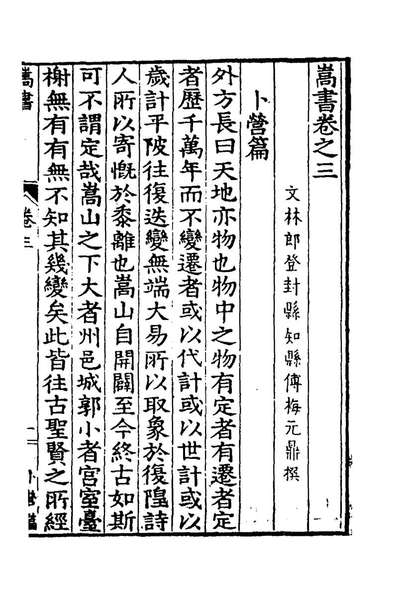 嵩書卷之三
文林郎登封縣知縣傅梅元鼎撰
卜營篇
外方長曰天地亦物也物中之物有定者有遷者定
者歷千萬年而不變遷者或以代計或以世計或以
歲計平陂往復迭變無端大易所以取象於復隍詩
人所以寄慨於黍離也嵩山自開闢至今終古如斯
可不謂定哉嵩山之下大者州邑城郭小者宮室臺
榭無有有無不知其幾變矣此皆往古聖賢之所經
嵩書
卷三
一
卜營篇